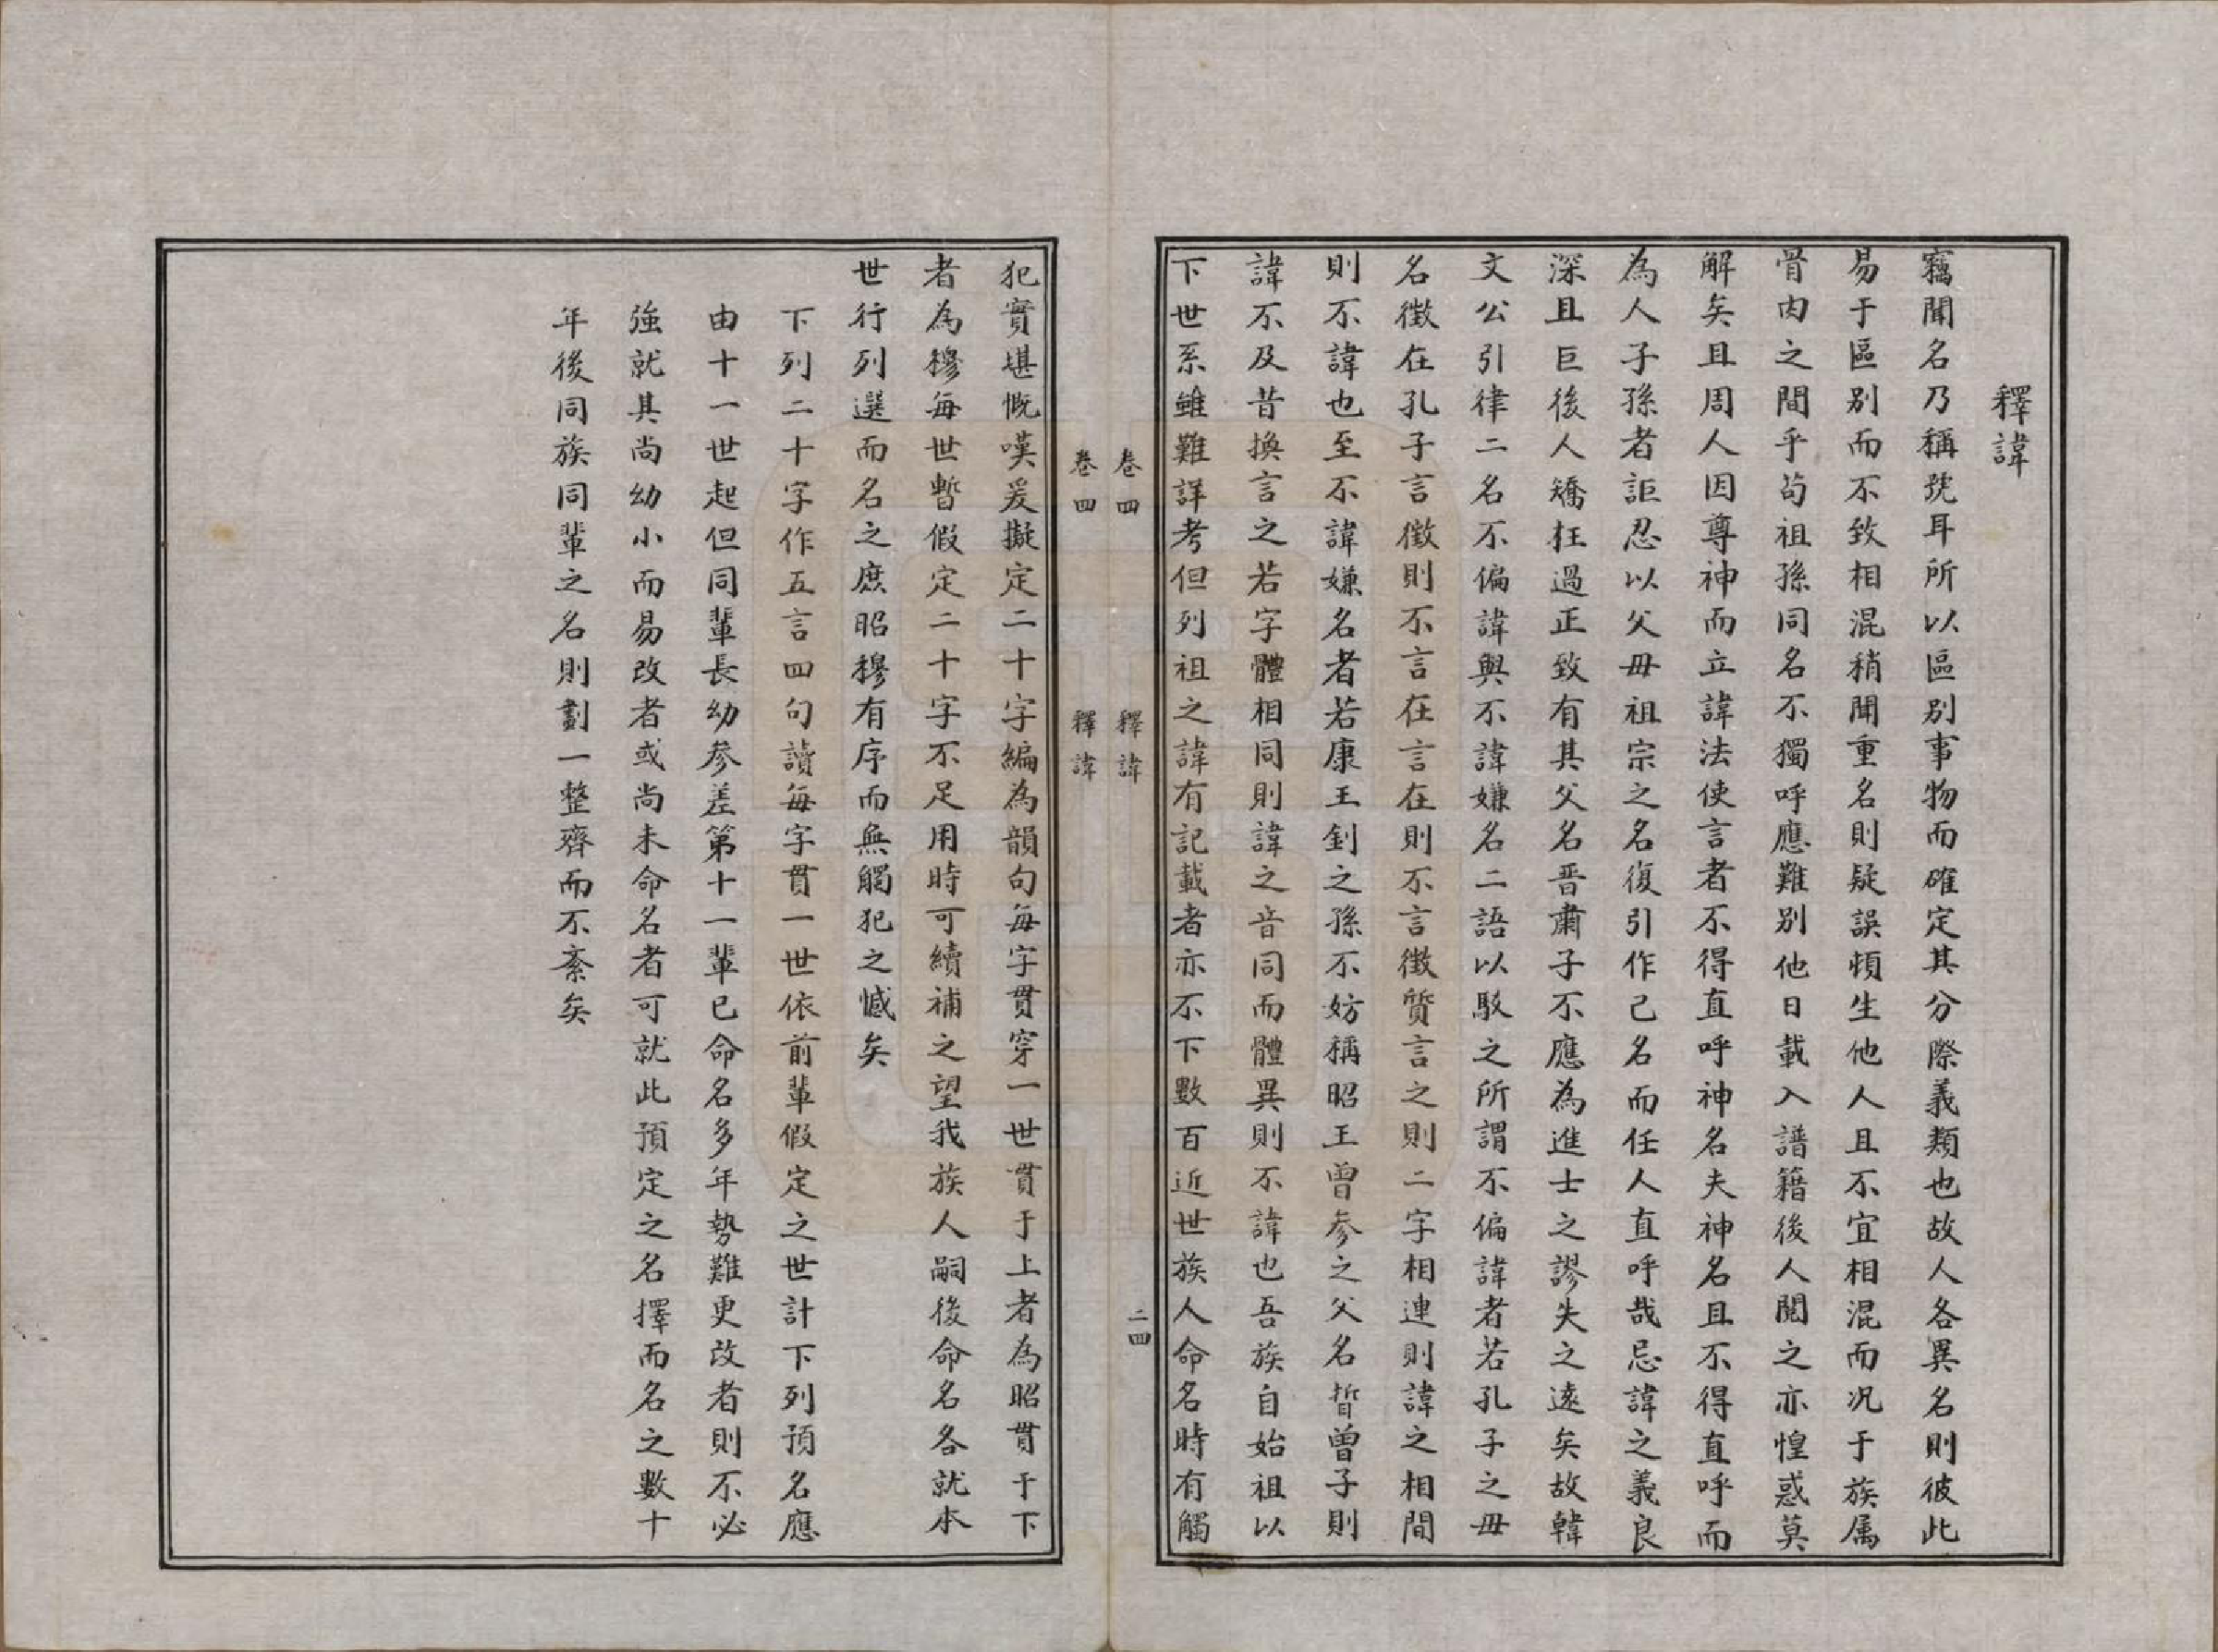 釋諱
竊聞名乃稱號耳所以區別事物而確定其分際義類也故人各異名則彼此
易于區別而不致相混稍聞重名則疑誤頓生他人且不宜相混而况于族属
骨肉之間乎苟祖孫同名不獨呼應難別他日載入譜籍後人閱之亦惶惑莫
解矣且周人因尊神而立諱法使言者不得直呼神名夫神名且不得直呼而
為人子孫者詎忍以父母祖宗之名復引作己名而任人直呼哉忌諱之義良
深且巨後人矯枉過正致有其父名晋肅子不應為進士之謬失之遠矣故韓
文公引律二名不偏諱與不諱嫌名二語以駁之所謂不偏諱者若孔子之毋
名徵在孔子言徵則不言在言在則不言徵質言之則二字相連則諱之相間
則不諱也至不諱嫌名者若康王釗之孫不妨稱昭王曾參之父名晳曾子則
諱不及昔換言之若字體相同則諱之音同而體異則不諱也吾族自始祖以
下世系雖難詳考但列祖之諱有記載者亦不下數百近世族人命名時有觸
卷四 釋諱 二四
卷四 釋諱
犯實堪慨嘆爰擬定二十字編為韻句每字貫穿一世貫于上者為昭貫于下
者為穆每世暫假定二十字不足用時可續補之望我族人嗣後命名各就本
世行列選而名之庶昭穆有序而無觸犯之憾矣
下列二十字作五言四句讀每字貫一世依前輩假定之世計下列預名應
由十一世起但同輩長幼參差第十一輩已命名多年勢難更改者則不必
強就其尚幼小而易改者或尚未命名者可就此預定之名擇而名之數十
年後同族同輩之名則劃一整齊而不紊矣